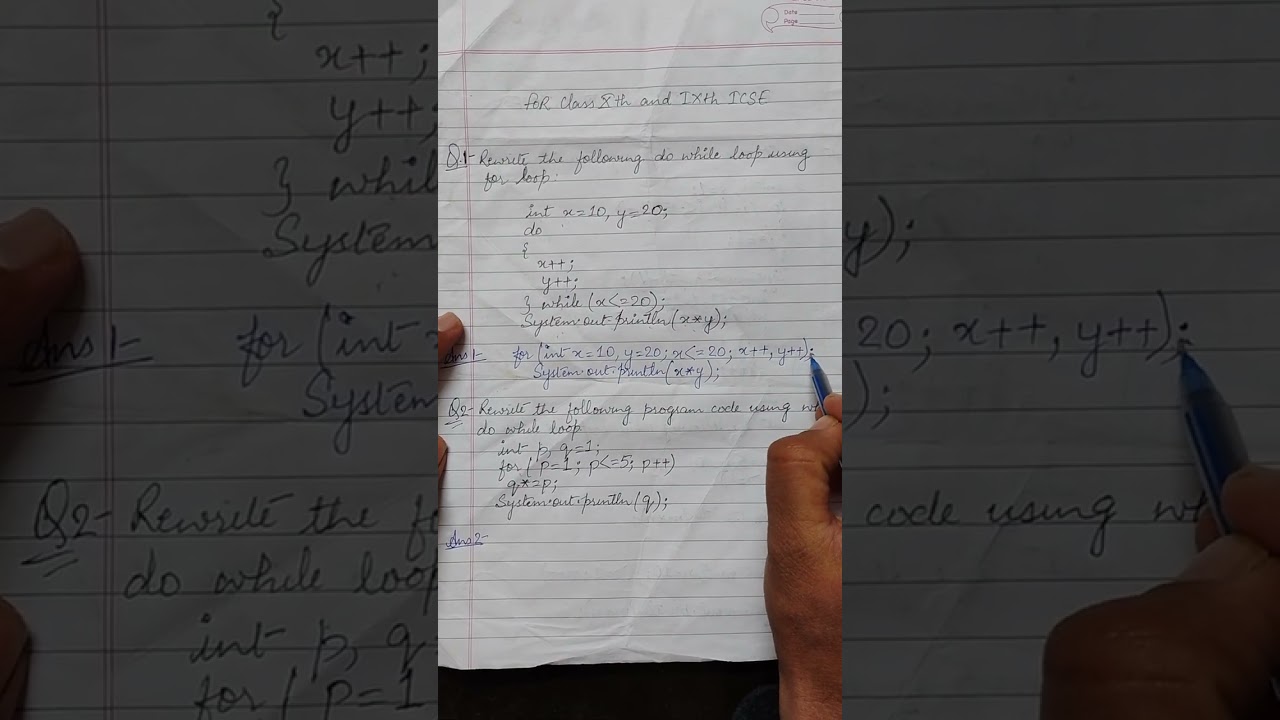 Date
Page
FOR Class Xth and IXth ICSE
Q.1- Rewrite the following do while loop using
for loop:
int x=10, y=20;
do
{
x++;
y++;
} while (x<=20);
System.out.println(x*y);
Ans 1- for (int x=10, y=20; x<=20; x++, y++);
System.out.println(x*y);
Q2- Rewrite the following program code using
do while loop.
int p, q=1;
for ( p=1; p<=5; p++)
q*=p;
System.out.println(q);
Ans2-